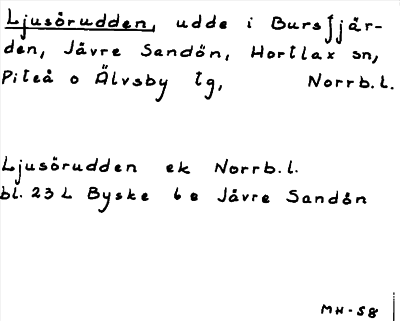 Ljusörudden, udde i Bursfjär-
den, Jävre Sandön, Hortlax sn,
Piteå o Älvsby tg, Norrb.l.
Ljusörudden ek Norrb.l.
bl. 23 L Byske 6 e Jävre Sandön
MH-58